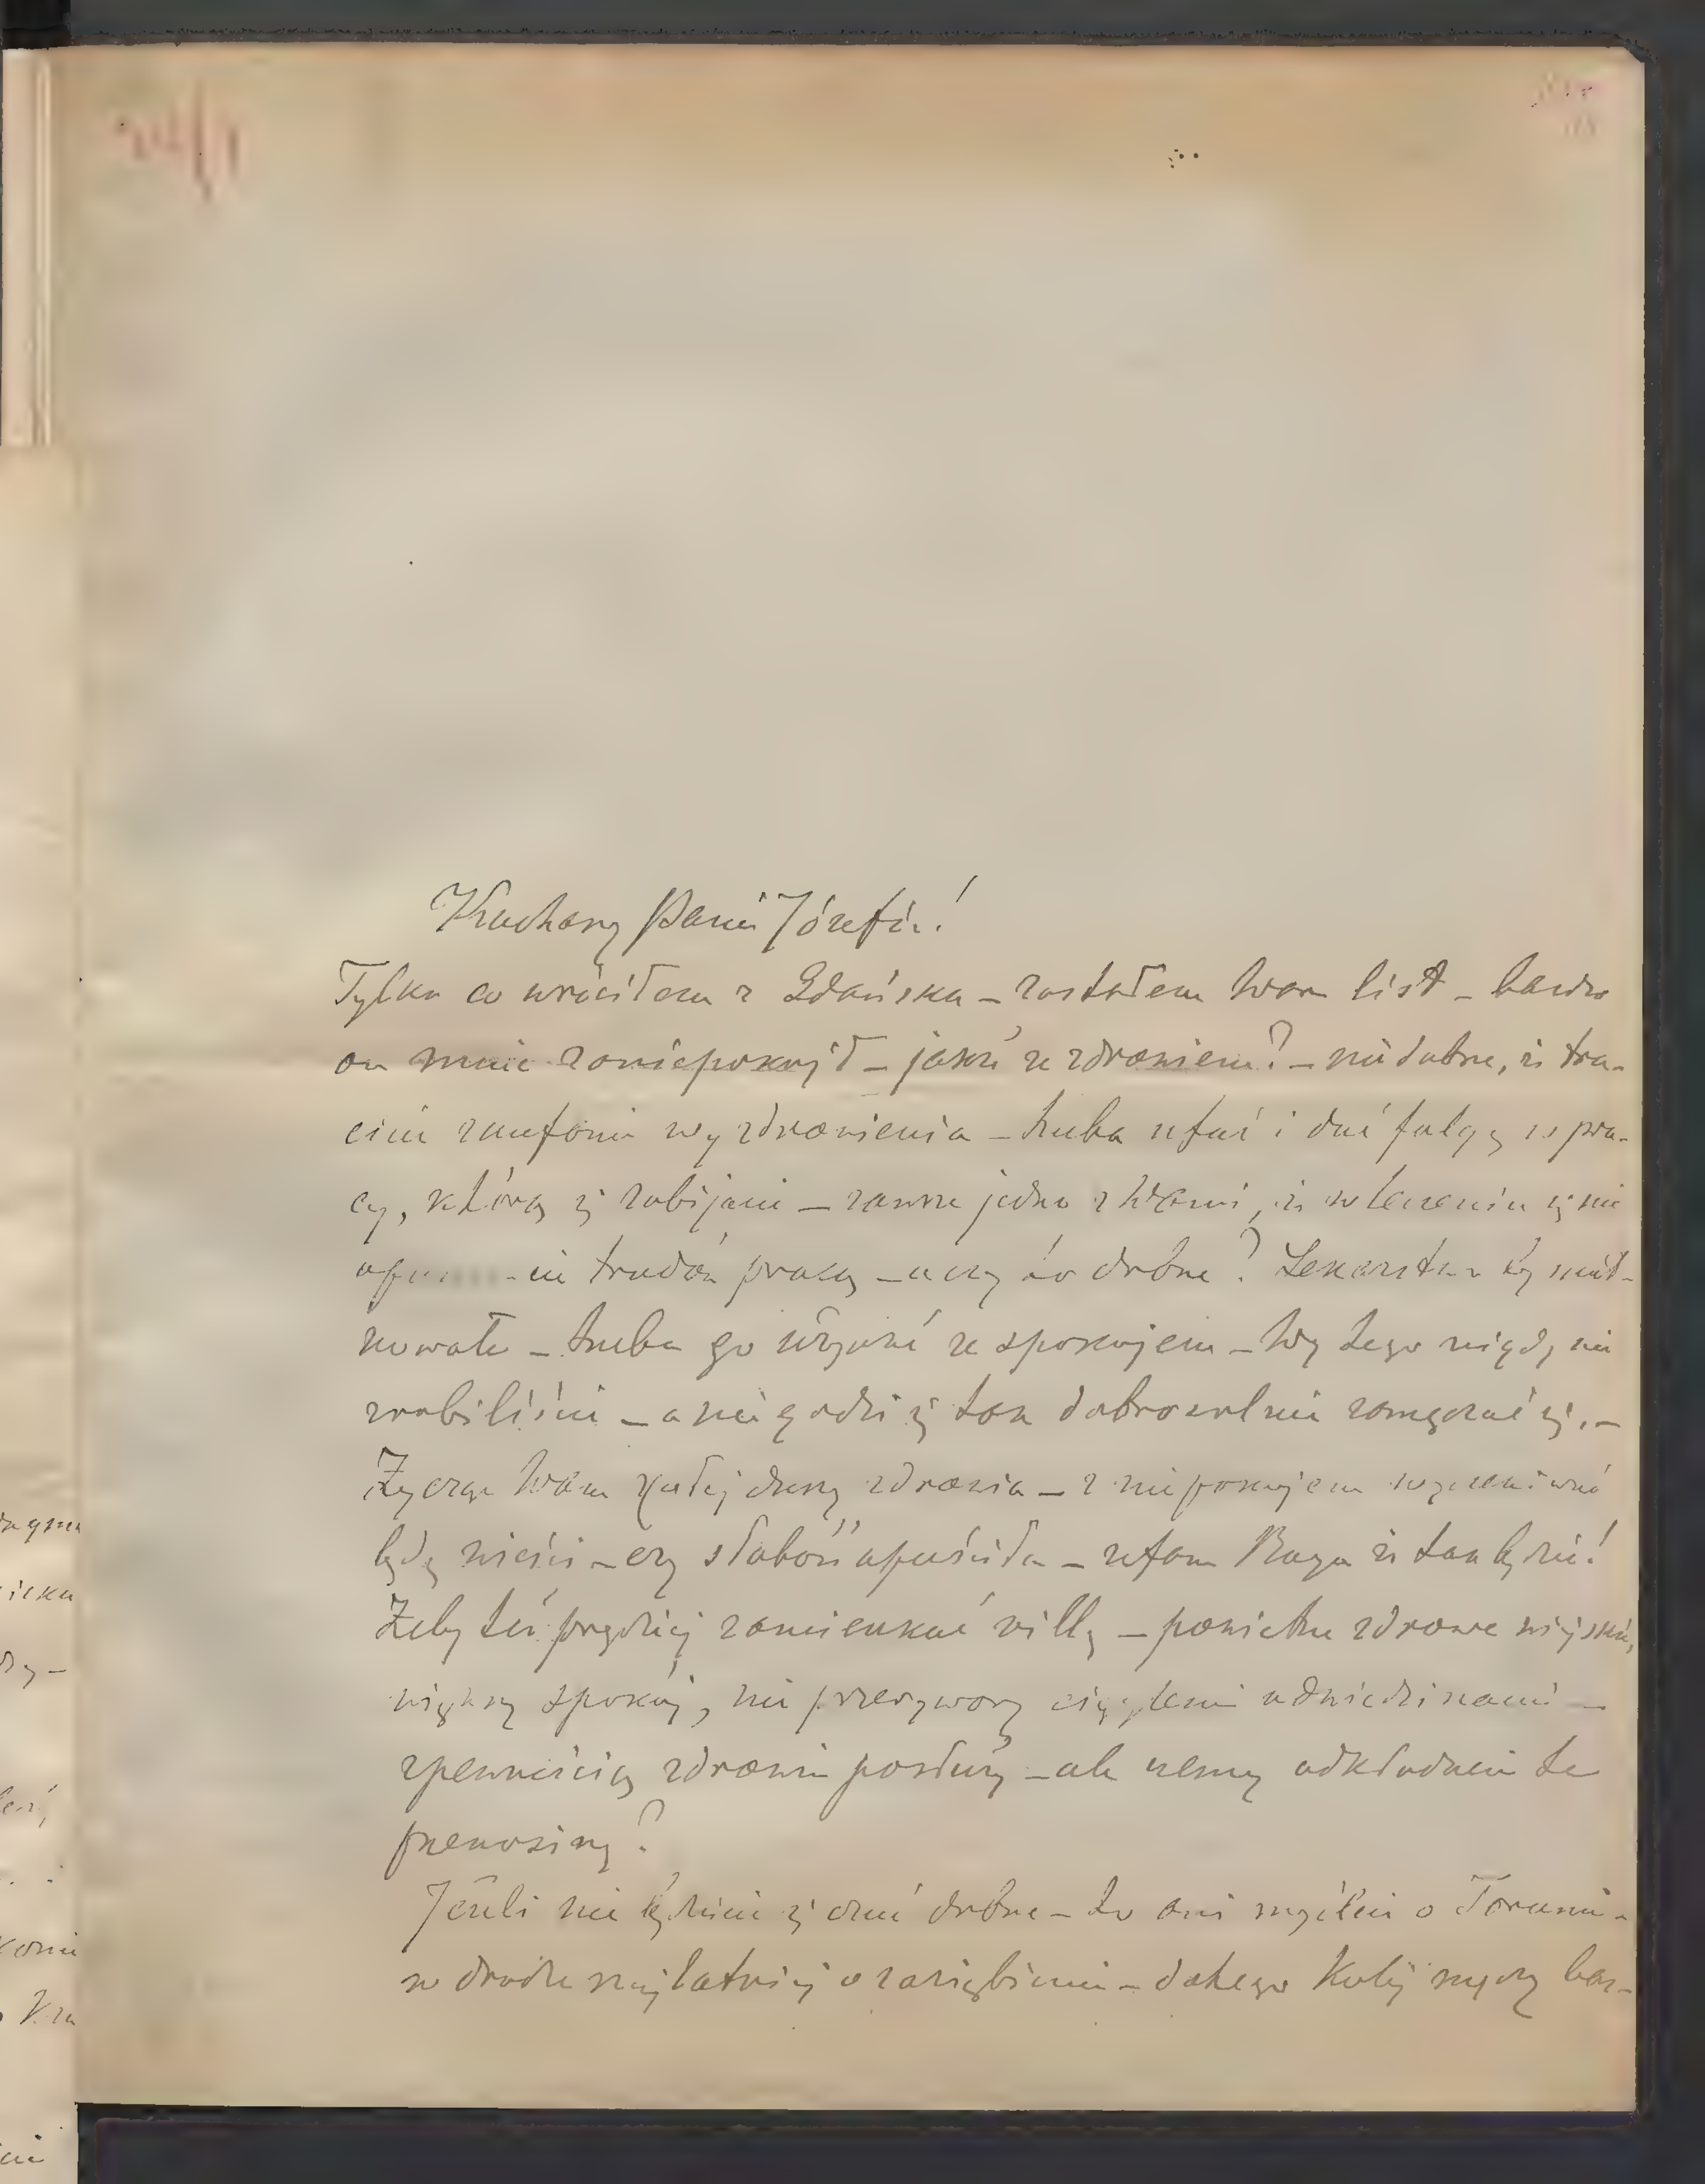 Kochany Panie Józefie!
Tylko co wróciłem z Gdańska – zastałem Wasz list – bardzo
on mnie zaniepokoił – jakże ze zdrowiem? – niedobrze, iż tra-
cicie zaufanie wyzdrowienia – trzeba ufać i dać folgę w pra-
cy, którą się zabijacie – zawsze jedno z Wami, iż w leczeniu się nie
trudów pracą – a czy to dobrze?
– trzeba go używać ze spokojem – Wy tego nigdy nie
zrobiliście – a nie godzi się tak dobrowolnie zamęczać się. –
Życzę Wam z całej duszy zdrowia – z niepokojem wyczekiwać
będę wieści – czy słabość opuściła – ufam Bogu iż tak będzie!
Żeby też prędzej zamieszkać willę – powietrze zdrowe wiejskie,
większy spokój, nie przerywany ciągłemi odwiedzinami –
z pewnością zdrowiu posłuży – ale czemu odkładacie te
przenosiny?
Jeżeli nie będziecie się czuć dobrze – to ani myślcie o Toruniu –
w drodze najłatwiej o zaziębienie – do tego kolej męczy bar-